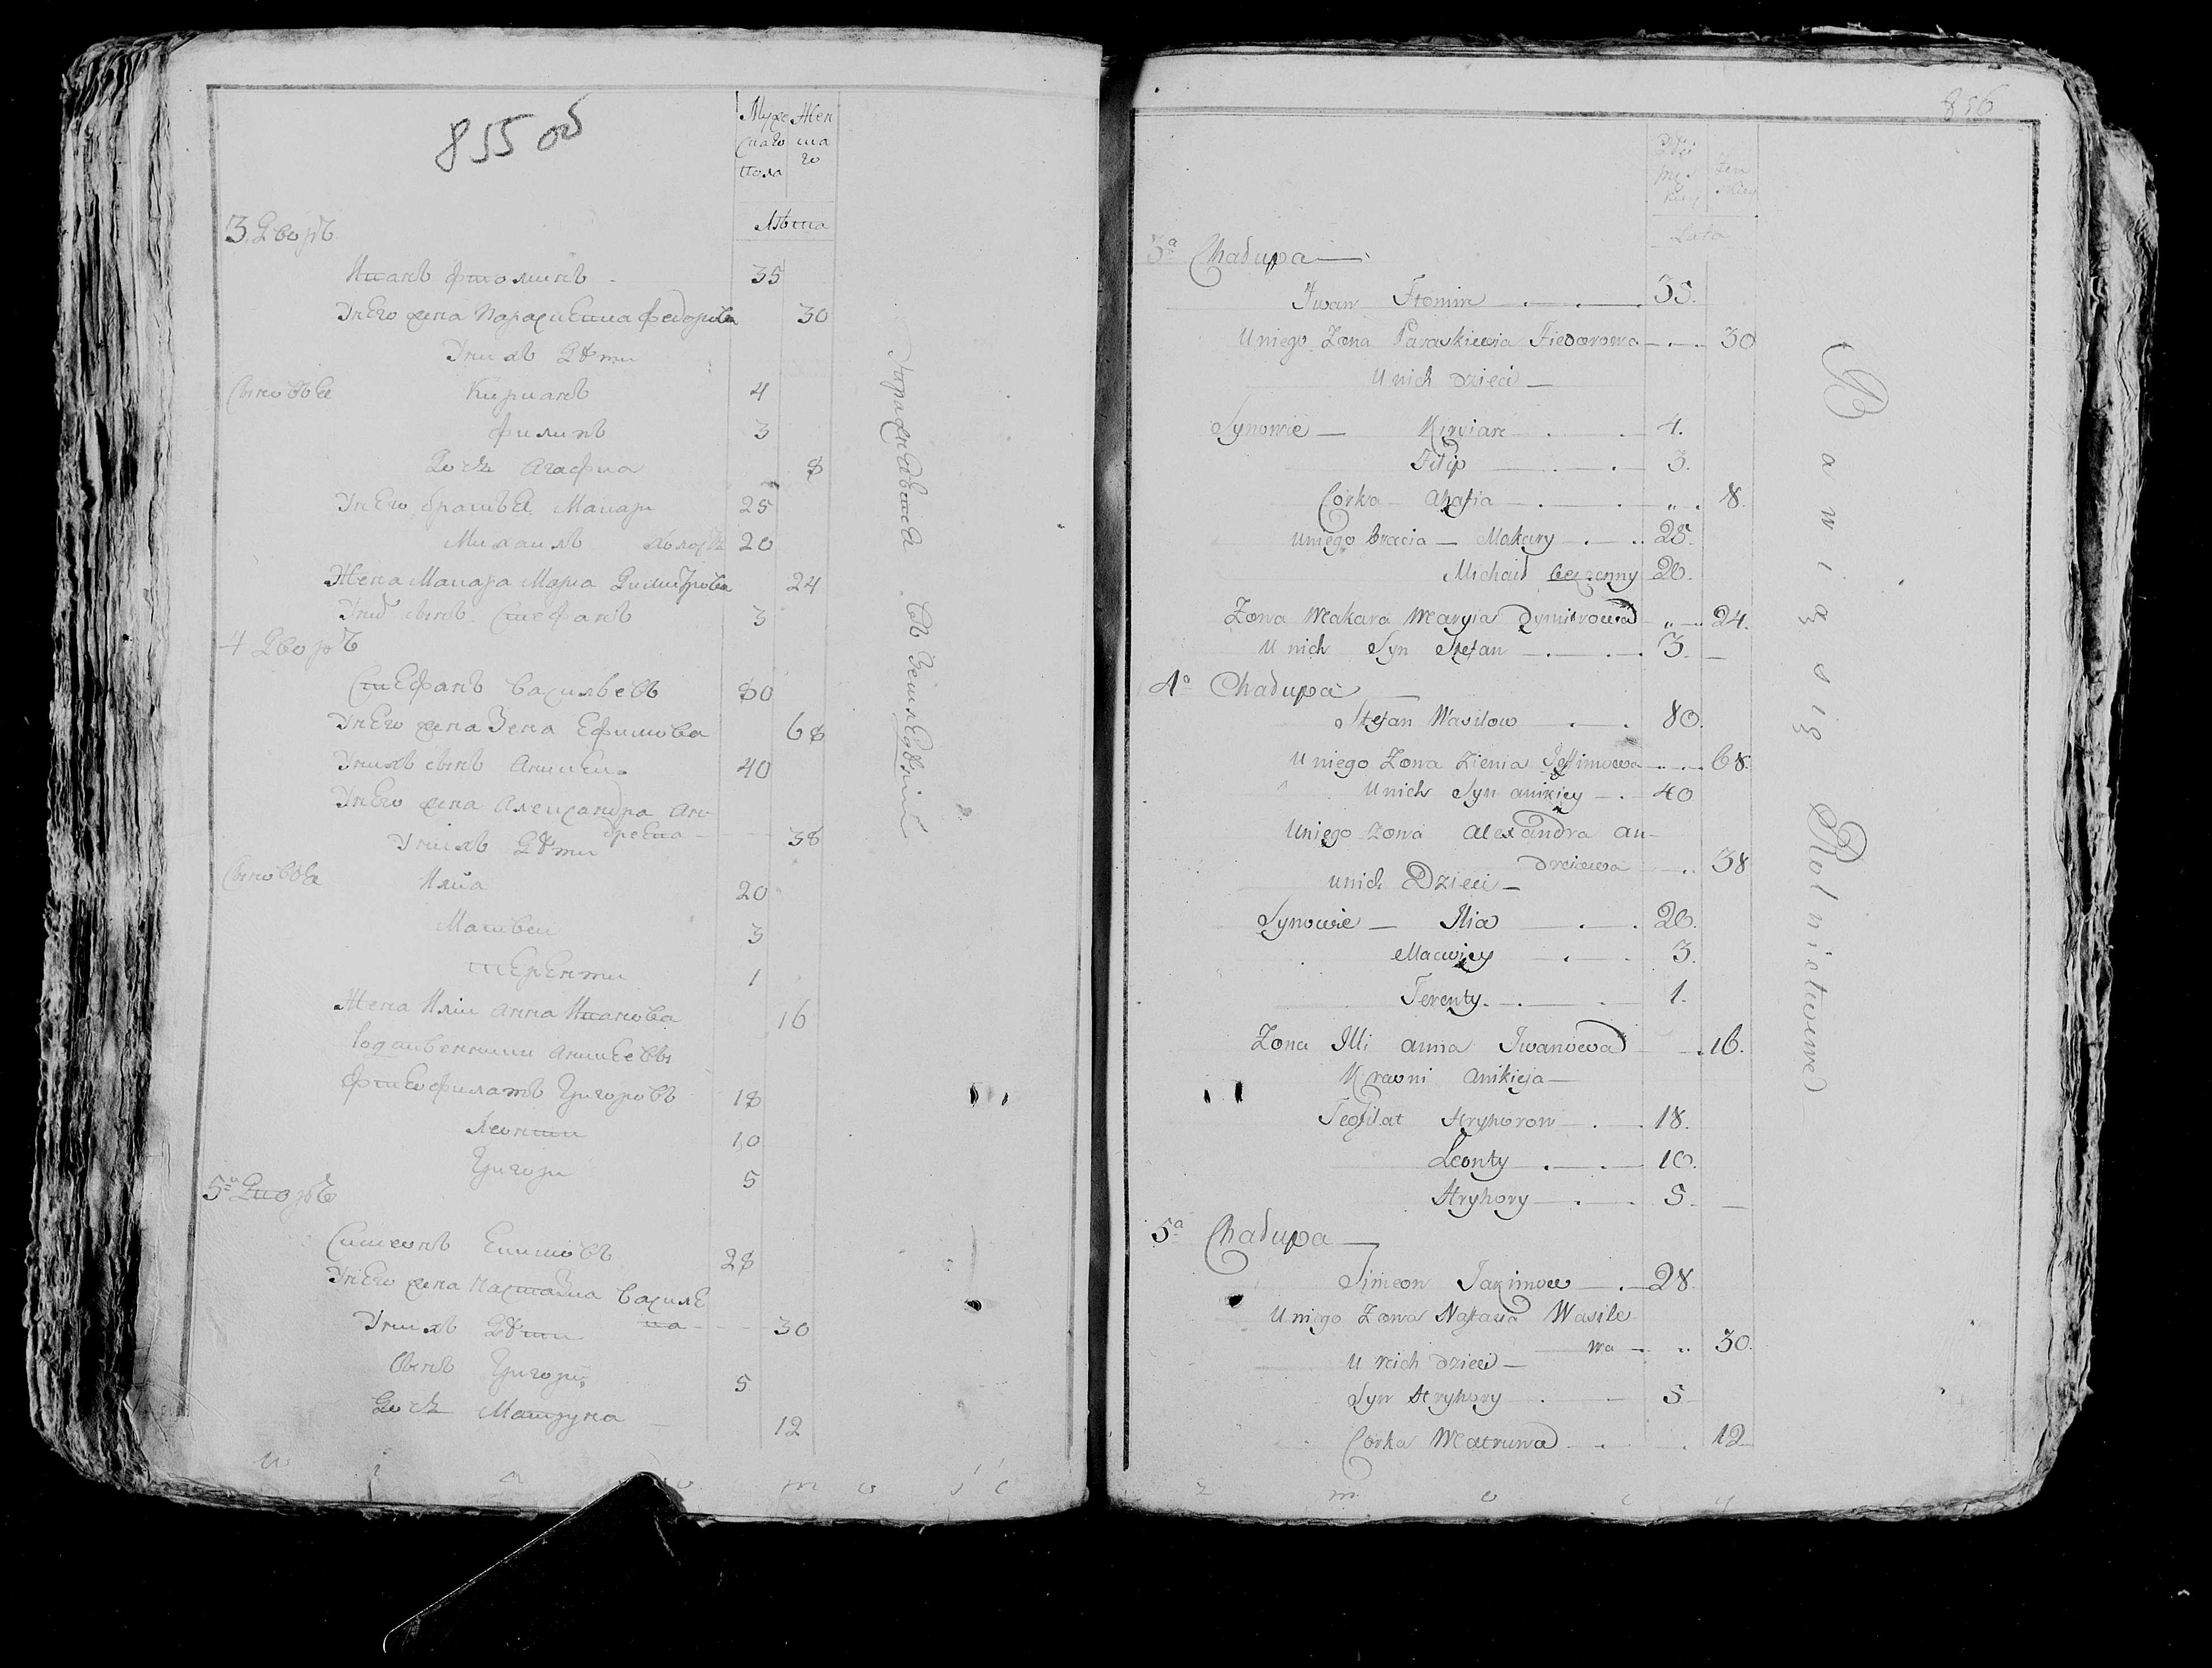 855 об
Мужескаго пола
Женскаго
Лѣта
3 Дворъ
Иванъ Фтоминъ 35
У него жена Параскева Федорова 30
У нихъ Дѣти
Сыновья Кирианъ 4
Филипъ 3
Дочь Агафиа 8
У него братья Макари 25
Михаилъ холостъ 20
Жена Макара Мариа Димитрова 24
У ни сынъ Стефанъ 3
4 Дворъ
Стефанъ Васильевъ 80
У него жена Зена Ефимова 68
У нихъ сынъ Аникеи 40
У него жена Александра Ан-
дреева 38
У нихъ Дѣти
Сыновья Илиа 20
Матвеи 3
Теренти 1
Жена Илии Анна Иванова 16
Родственники Аникеевы
Фтеофилатъ Григоровъ 18
Леонти 10
Григори 5
5й Дворъ
Симеонъ Екимовъ 28
У него жена Настазиа Василе
ва 30
У нихъ Дѣти
Сынъ Григори 5
Дочь Матруна 12
Упражняются въ Земледѣлии
856
Płci męskiey
Żenskiey
Lata
3a Chałupa
Iwan Ftomin 35.
U niego Żona Paraskiewia Fiedorowa 30
U nich Dzieci
Synowie Kiryian 4.
Filip 3.
Córka Ahafia 8.
U niego bracia Makary 25.
Michaił bezżenny 20.
Żona Makara Maryia Dymitrowa 24.
U nich Syn Stefan 3
4a Chałupa
Stefan Wasilow 80.
U niego Żona Zienia Jeffimowa 68.
U nich Syn Anikiey 40
U niego Żona Alexandra An-
dreiewa 38
U nich Dzieci
Synowie Ilia 20.
Macwiey 3.
Terenty 1.
Żona Illi Anna Iwanowa 16.
Krewni Anikieja
Teofilat Hryhorow 18.
Leonty 10.
Hryhory 5
5a Chałupa
Simeon Jakimow 28.
U niego Żona Nastazia Wasile
wa 30.
U nich Dzieci
Syn Hryhory 5
Córka Matruna 12
Bawią się Rolnictwem